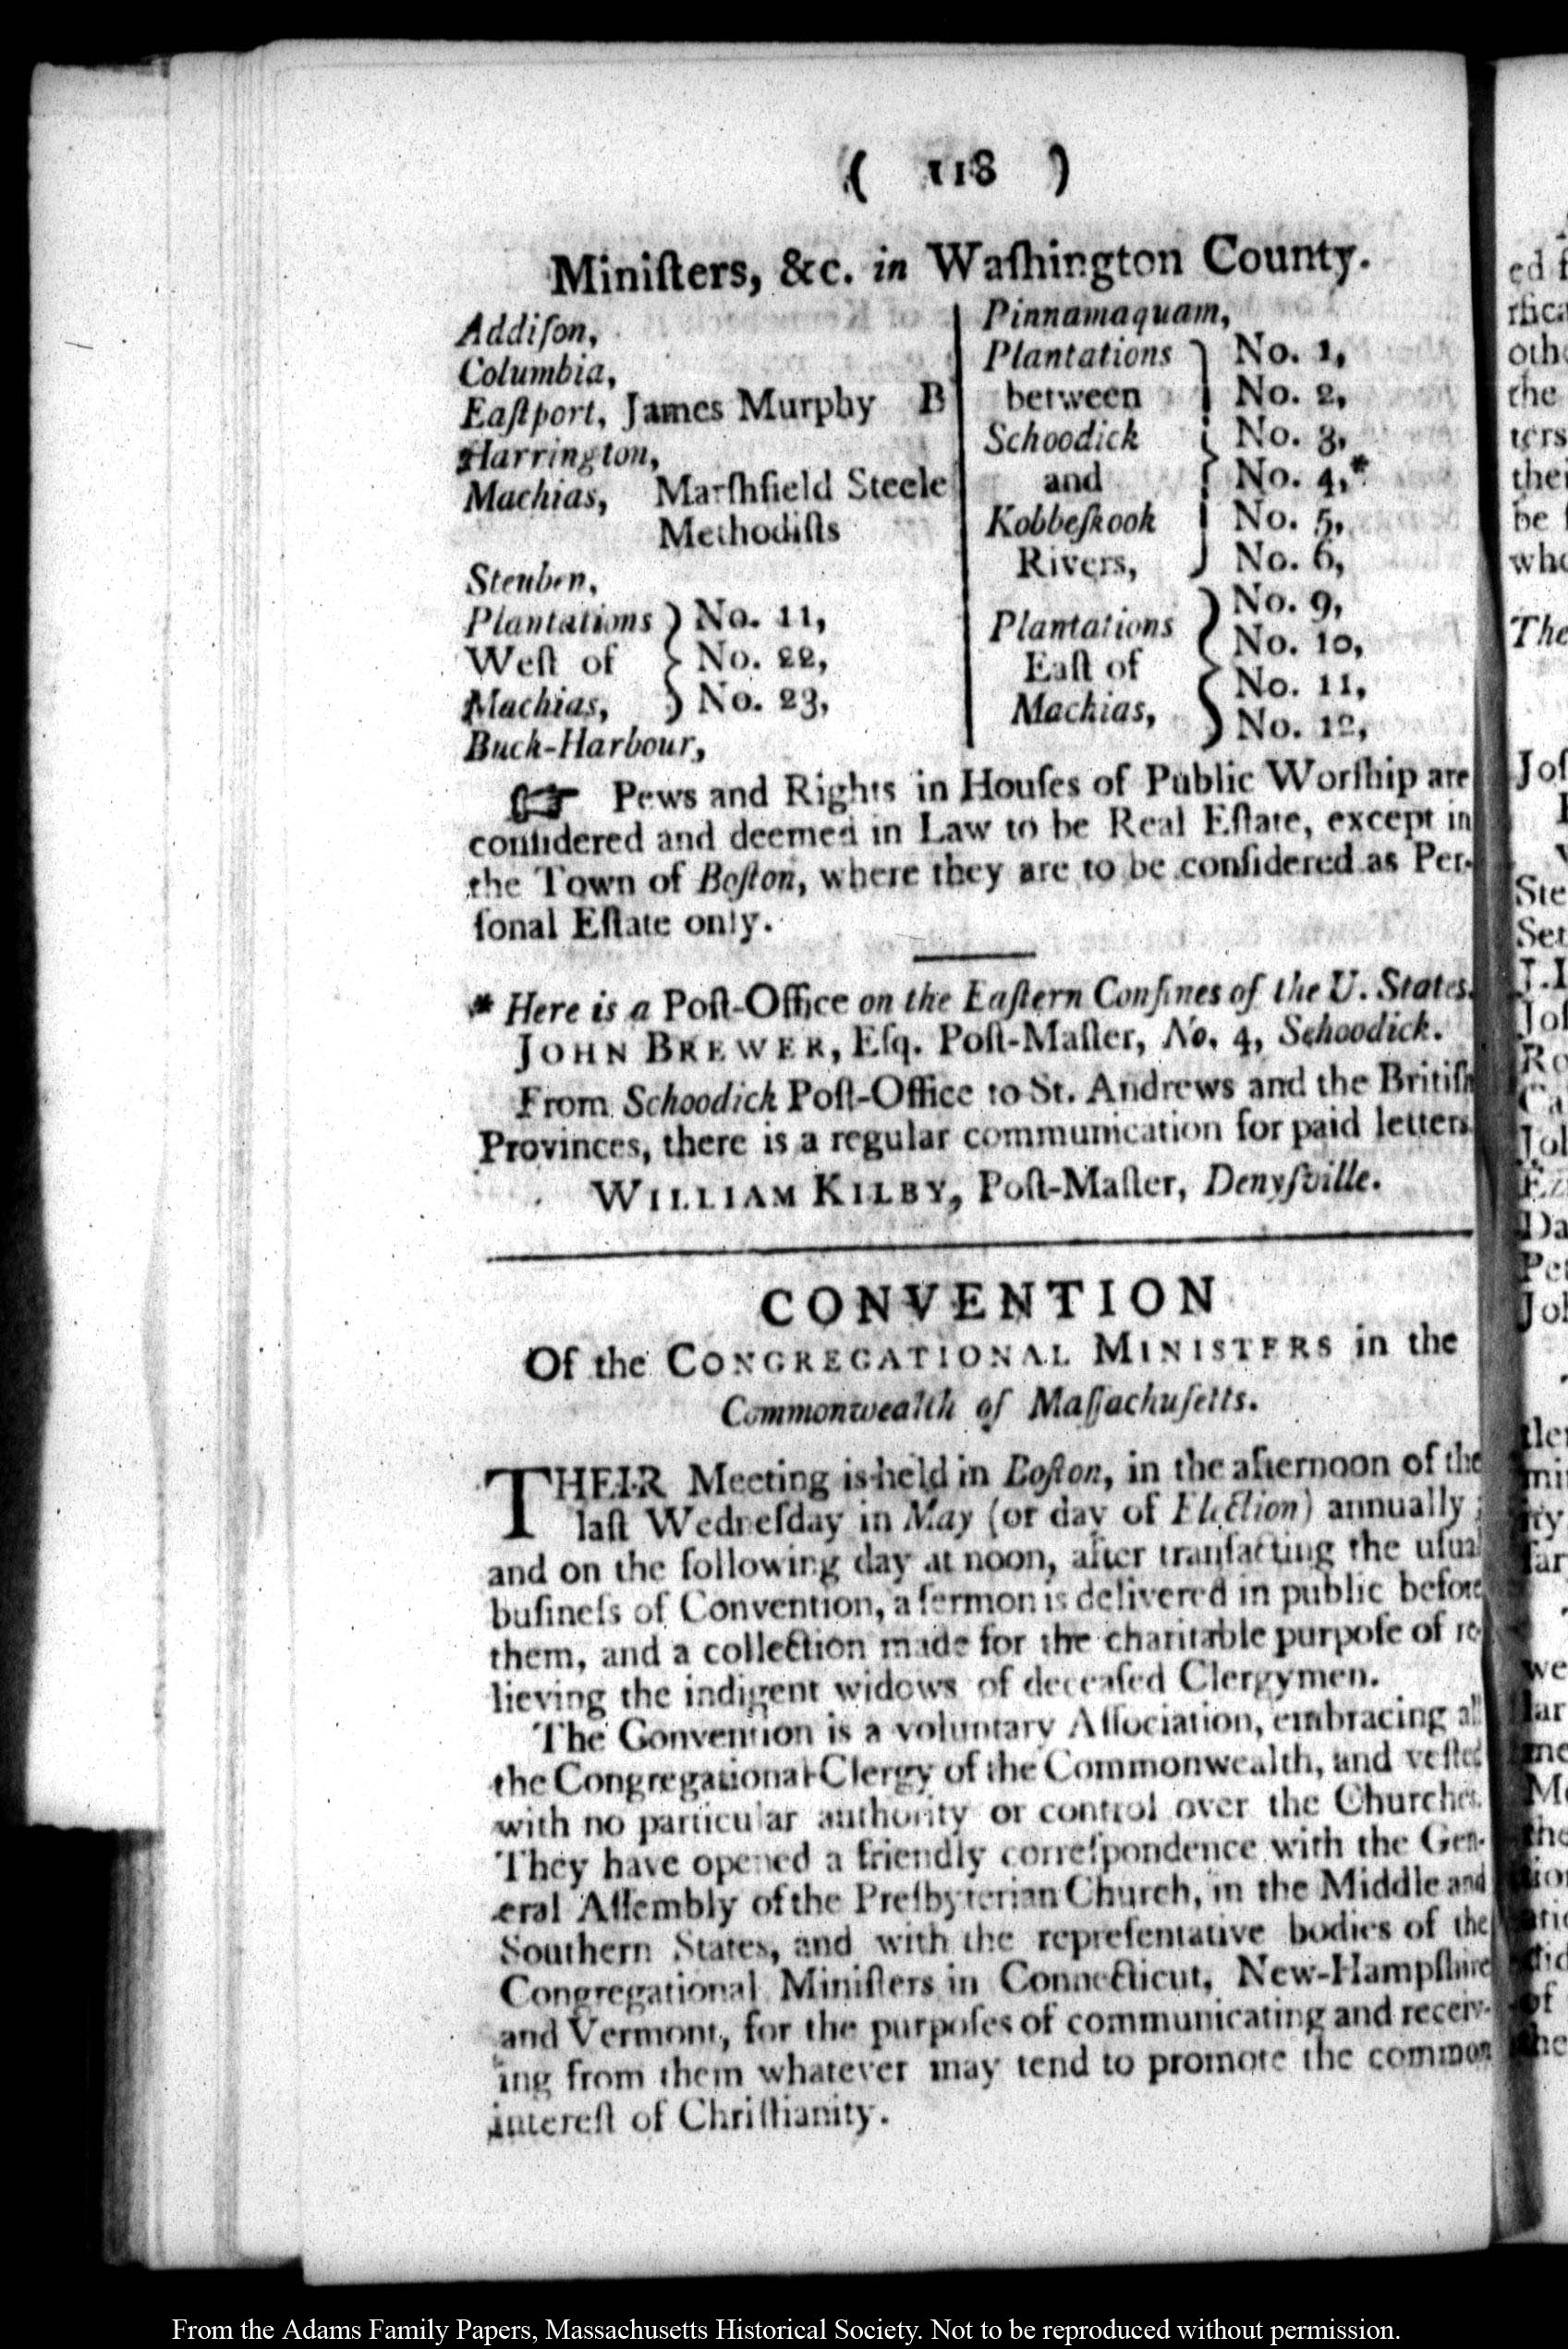 ( 118 )
Miniſters, &c. in Waſhington County.
Addiſon,
Columbia,
Eaſtport, James Murphy B
Harrington,
Machias, Marſhfield Steele
Methodiſts
Steuben,
Plantations } No. 11,
Weſt of } No. 22,
Machias, } No. 23,
Buck-Harbour,
Pinnamaquam,
Plantations } No. 1,
between } No. 2,
Schoodick } No. 3,
and } No. 4,*
Kobbeſkook } No. 5,
Rivers, } No. 6,
} No. 9,
Plantations } No. 10,
Eaſt of } No. 11,
Machias, } No. 12,
☞ Pews and Rights in Houſes of Public Worſhip are
conſidered and deemed in Law to be Real Eſtate, except in
the Town of Boſton, where they are to be conſidered as Per-
ſonal Eſtate only.
* Here is a Poſt-Office on the Eaſtern Confines of the U. States.
JOHN BREWER, Eſq. Poſt-Maſter, No. 4, Schoodick.
From Schoodick Poſt-Office to St. Andrews and the Britiſh
Provinces, there is a regular communication for paid letters.
WILLIAM KILBY, Poſt-Maſter, Denyſville.
CONVENTION
Of the CONGREGATIONAL MINISTERS in the
Commonwealth of Maſſachuſetts.
THEIR Meeting is held in Boſton, in the afternoon of the
laſt Wedneſday in May (or day of Election) annually ;
and on the following day at noon, after tranſacting the uſual
buſineſs of Convention, a ſermon is delivered in public before
them, and a collection made for the charitable purpoſe of re-
lieving the indigent widows of deceaſed Clergymen.
The Convention is a voluntary Aſſociation, embracing all
the Congregational Clergy of the Commonwealth, and veſted
with no particular authority or control over the Churches.
They have opened a friendly correſpondence with the Gen-
eral Aſſembly of the Preſbyterian Church, in the Middle and
Southern States, and with the repreſentative bodies of the
Congregational Miniſters in Connecticut, New-Hampſhire
and Vermont, for the purpoſes of communicating and receiv-
ing from them whatever may tend to promote the common
intereſt of Chriſtianity.
From the Adams Family Papers, Massachusetts Historical Society. Not to be reproduced without permission.